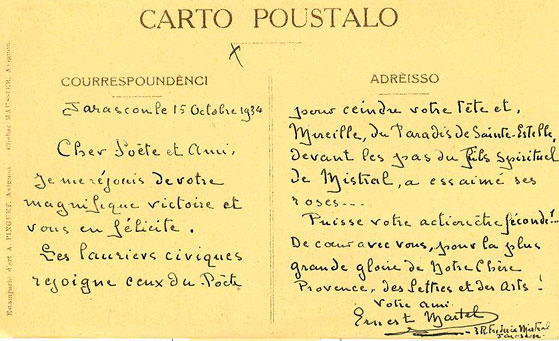 CARTO POUSTALO
COURRESPOUNDÈNCI
Tarascon le 15 Octobre 1934
Cher Poëte et Ami,
Je me réjouis de votre
magnifique victoire et
vous en félicite.
Les lauriers civiques
rejoigne ceux du Poëte
ADRÈISSO
pour ceindre votre tête et,
Mireille, du Paradis de Sainte-Estelle,
devant les pas du fils Spirituel
de Mistral, a essaimé ses
roses...
Puisse votre action être féconde!..
De cœur avec vous, pour la plus
grande gloire de Notre Chère
Provence, des Lettres et des Arts!
Votre ami
Ernest Martel
R. Frédéric Mistral
Tarascon
Estamparié d'art A. PINGUET, Avignon Clichat MAUSSIER, Avignon.